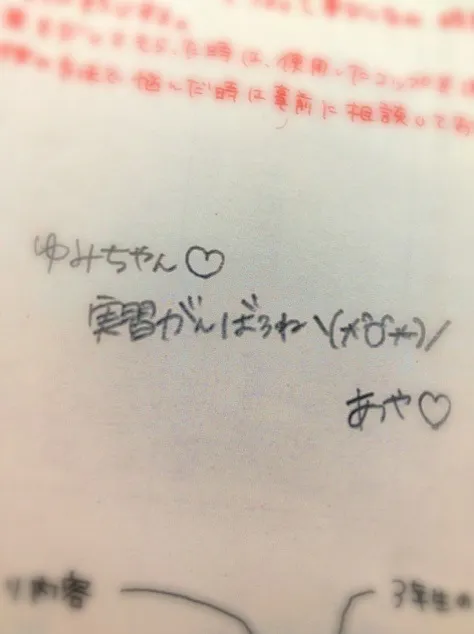 た時は、使用したコップを
で悩んだ時は事前に相談して
ゆみちゃん♡
実習がんばろね\(*ôôô*)/
あや♡
内容
3年生の